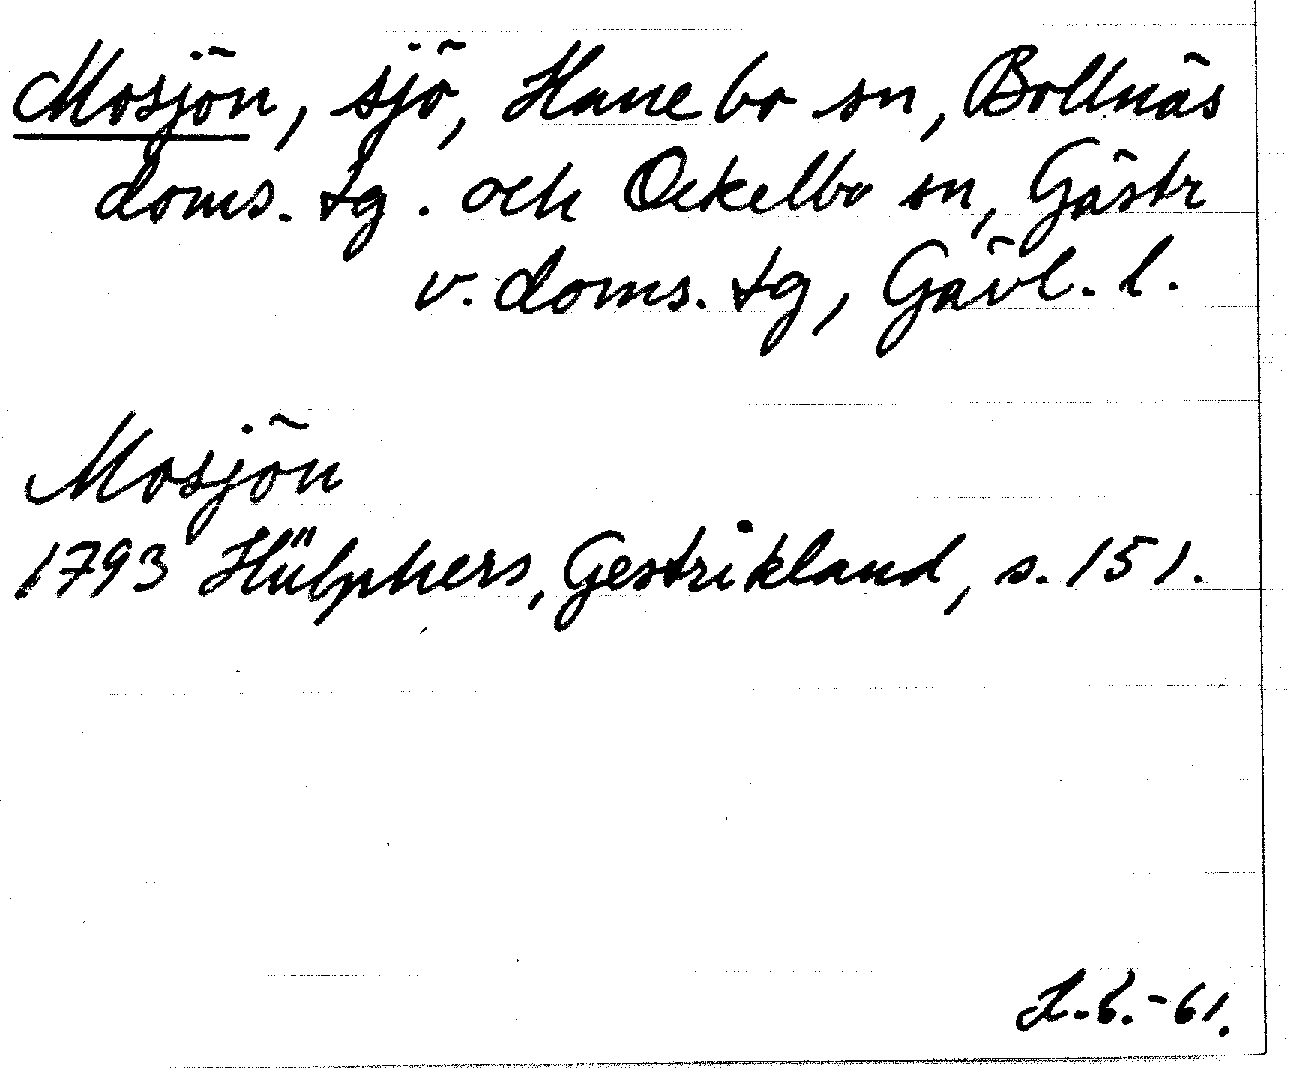 Mosjön, sjö, Hanebo sn, Bollnäs
doms. tg. och Ockelbo sn, Gästr
v. doms. tg, Gävl. l.
Mosjön
1793 Hülphers, Gestrikland, s. 151.
-61.